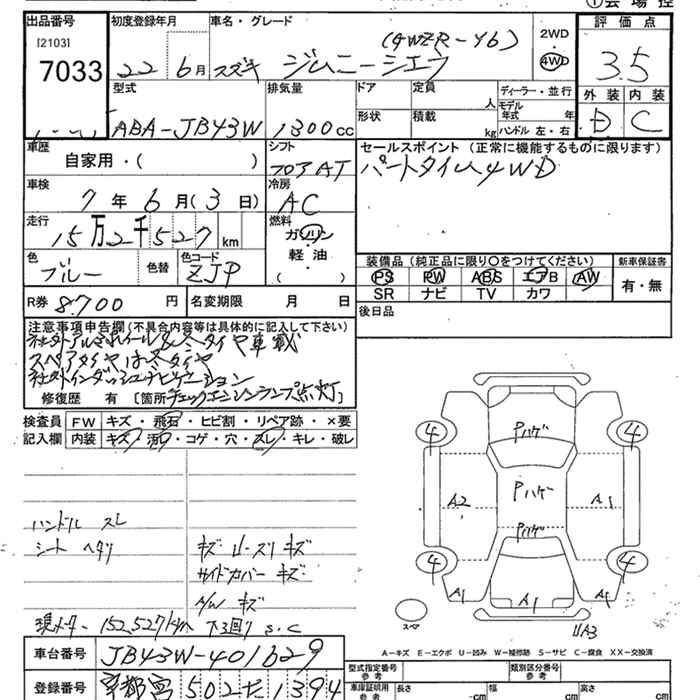 出品番号 初度登録年月 車名・グレード 評価点
[2103]
7033 22 6月 スズキ ジムニーシエラ 2WD 4WD 3.5
外装 内装
D C
型式 排気量 ドア 定員 人 ディーラー・並行
ABA-JB43W 1300cc 形状 積載 kg モデル年式 年
ハンドル 左・右
車歴 シフト セールスポイント (正常に機能するものに限ります)
自家用・( ) フロアAT パートタイム4WD
車検 冷房
7年 6月(3日) AC
走行 燃料
15万2千527km ガソリン
軽油
( )
色 色替 色コード
ブルー ZJP
装備品 (純正品に限り〇をつけてください) 新車保証書
PS PW ABS エアB AW 有・無
SR ナビ TV カワ
R券 8.700円 名変期限 月 日 後日品
注意事項申告欄 (不具合内容等は具体的に記入して下さい)
社外アルミホイール&冬タイヤ車載
スペアタイヤは冬タイヤ
社外インダッシュナビゲーション
修復歴 有 [箇所 チェックエンジンランプ点灯]
検査員 FW キズ・飛石・ヒビ割・リペア跡・×要
記入欄 内装 キズ・汚・コゲ・穴・スレ・キレ・破レ
Pハゲ
4 4
Pハゲ
A2 A1
Pハゲ
ハンドル スレ
シート ヘタリ キズ U・スリキズ
サイドカバー キズ
A/W キズ
4 4
A1 A1 A1
スペア
UA3
現メーター 152,527km 下3回り S.C
A-キズ E-エクボ U-凹み W-補修跡 S-サビ C-腐食 XX-交換済
車台番号 JB43W-401629
型式指定番号 参考 類別区分番号 参考
登録番号 宇都宮502 1394
車庫証明用 参考 長さ -cm 幅 -cm 高さ -cm